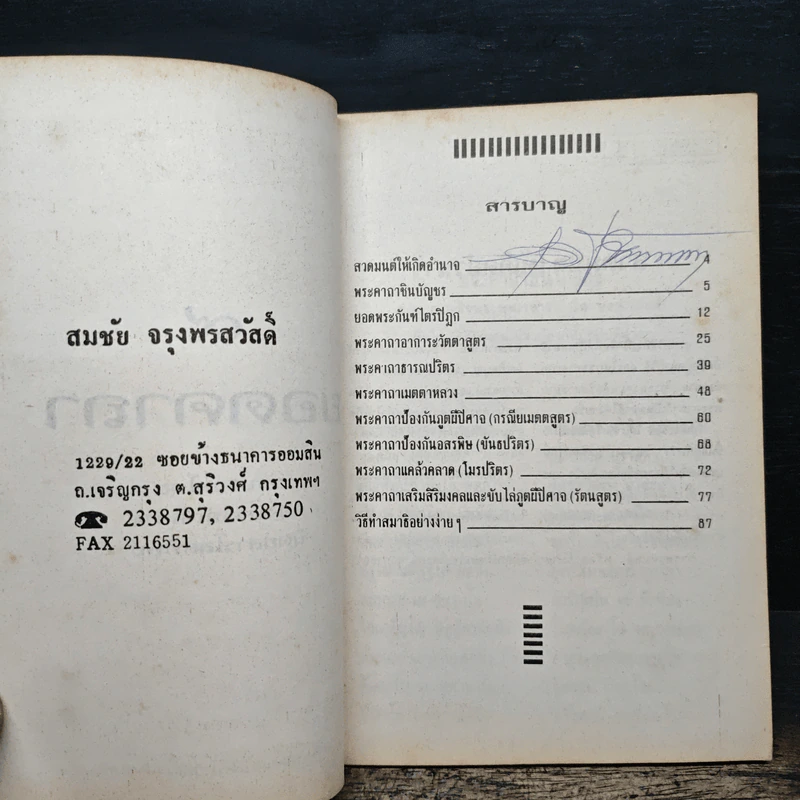 สมชัย จรุงพรสวัสดิ์
1229/22 ซอยข้างธนาคารออมสิน
ถ.เจริญกรุง ต.สุริวงศ์ กรุงเทพฯ
☎ 2338797, 2338750
FAX 2116551
สารบาญ
สวดมนต์ให้เกิดอำนาจ 4
พระคาถาชินบัญชร 5
ยอดพระกันฑ์ไตรปิฎก 12
พระคาถาอาการะวัตตาสูตร 25
พระคาถาธารณปริตร 39
พระคาถาเมตตาหลวง 48
พระคาถาป้องกันภูตผีปิศาจ (กรณียเมตตสูตร) 60
พระคาถาป้องกันอสรพิษ (ขันธปริตร) 68
พระคาถาแคล้วคลาด (โมรปริตร) 72
พระคาถาเสริมสิริมงคลและขับไล่ภูตผีปิศาจ (รัตนสูตร) 77
วิธีทำสมาธิอย่างง่าย ๆ 87